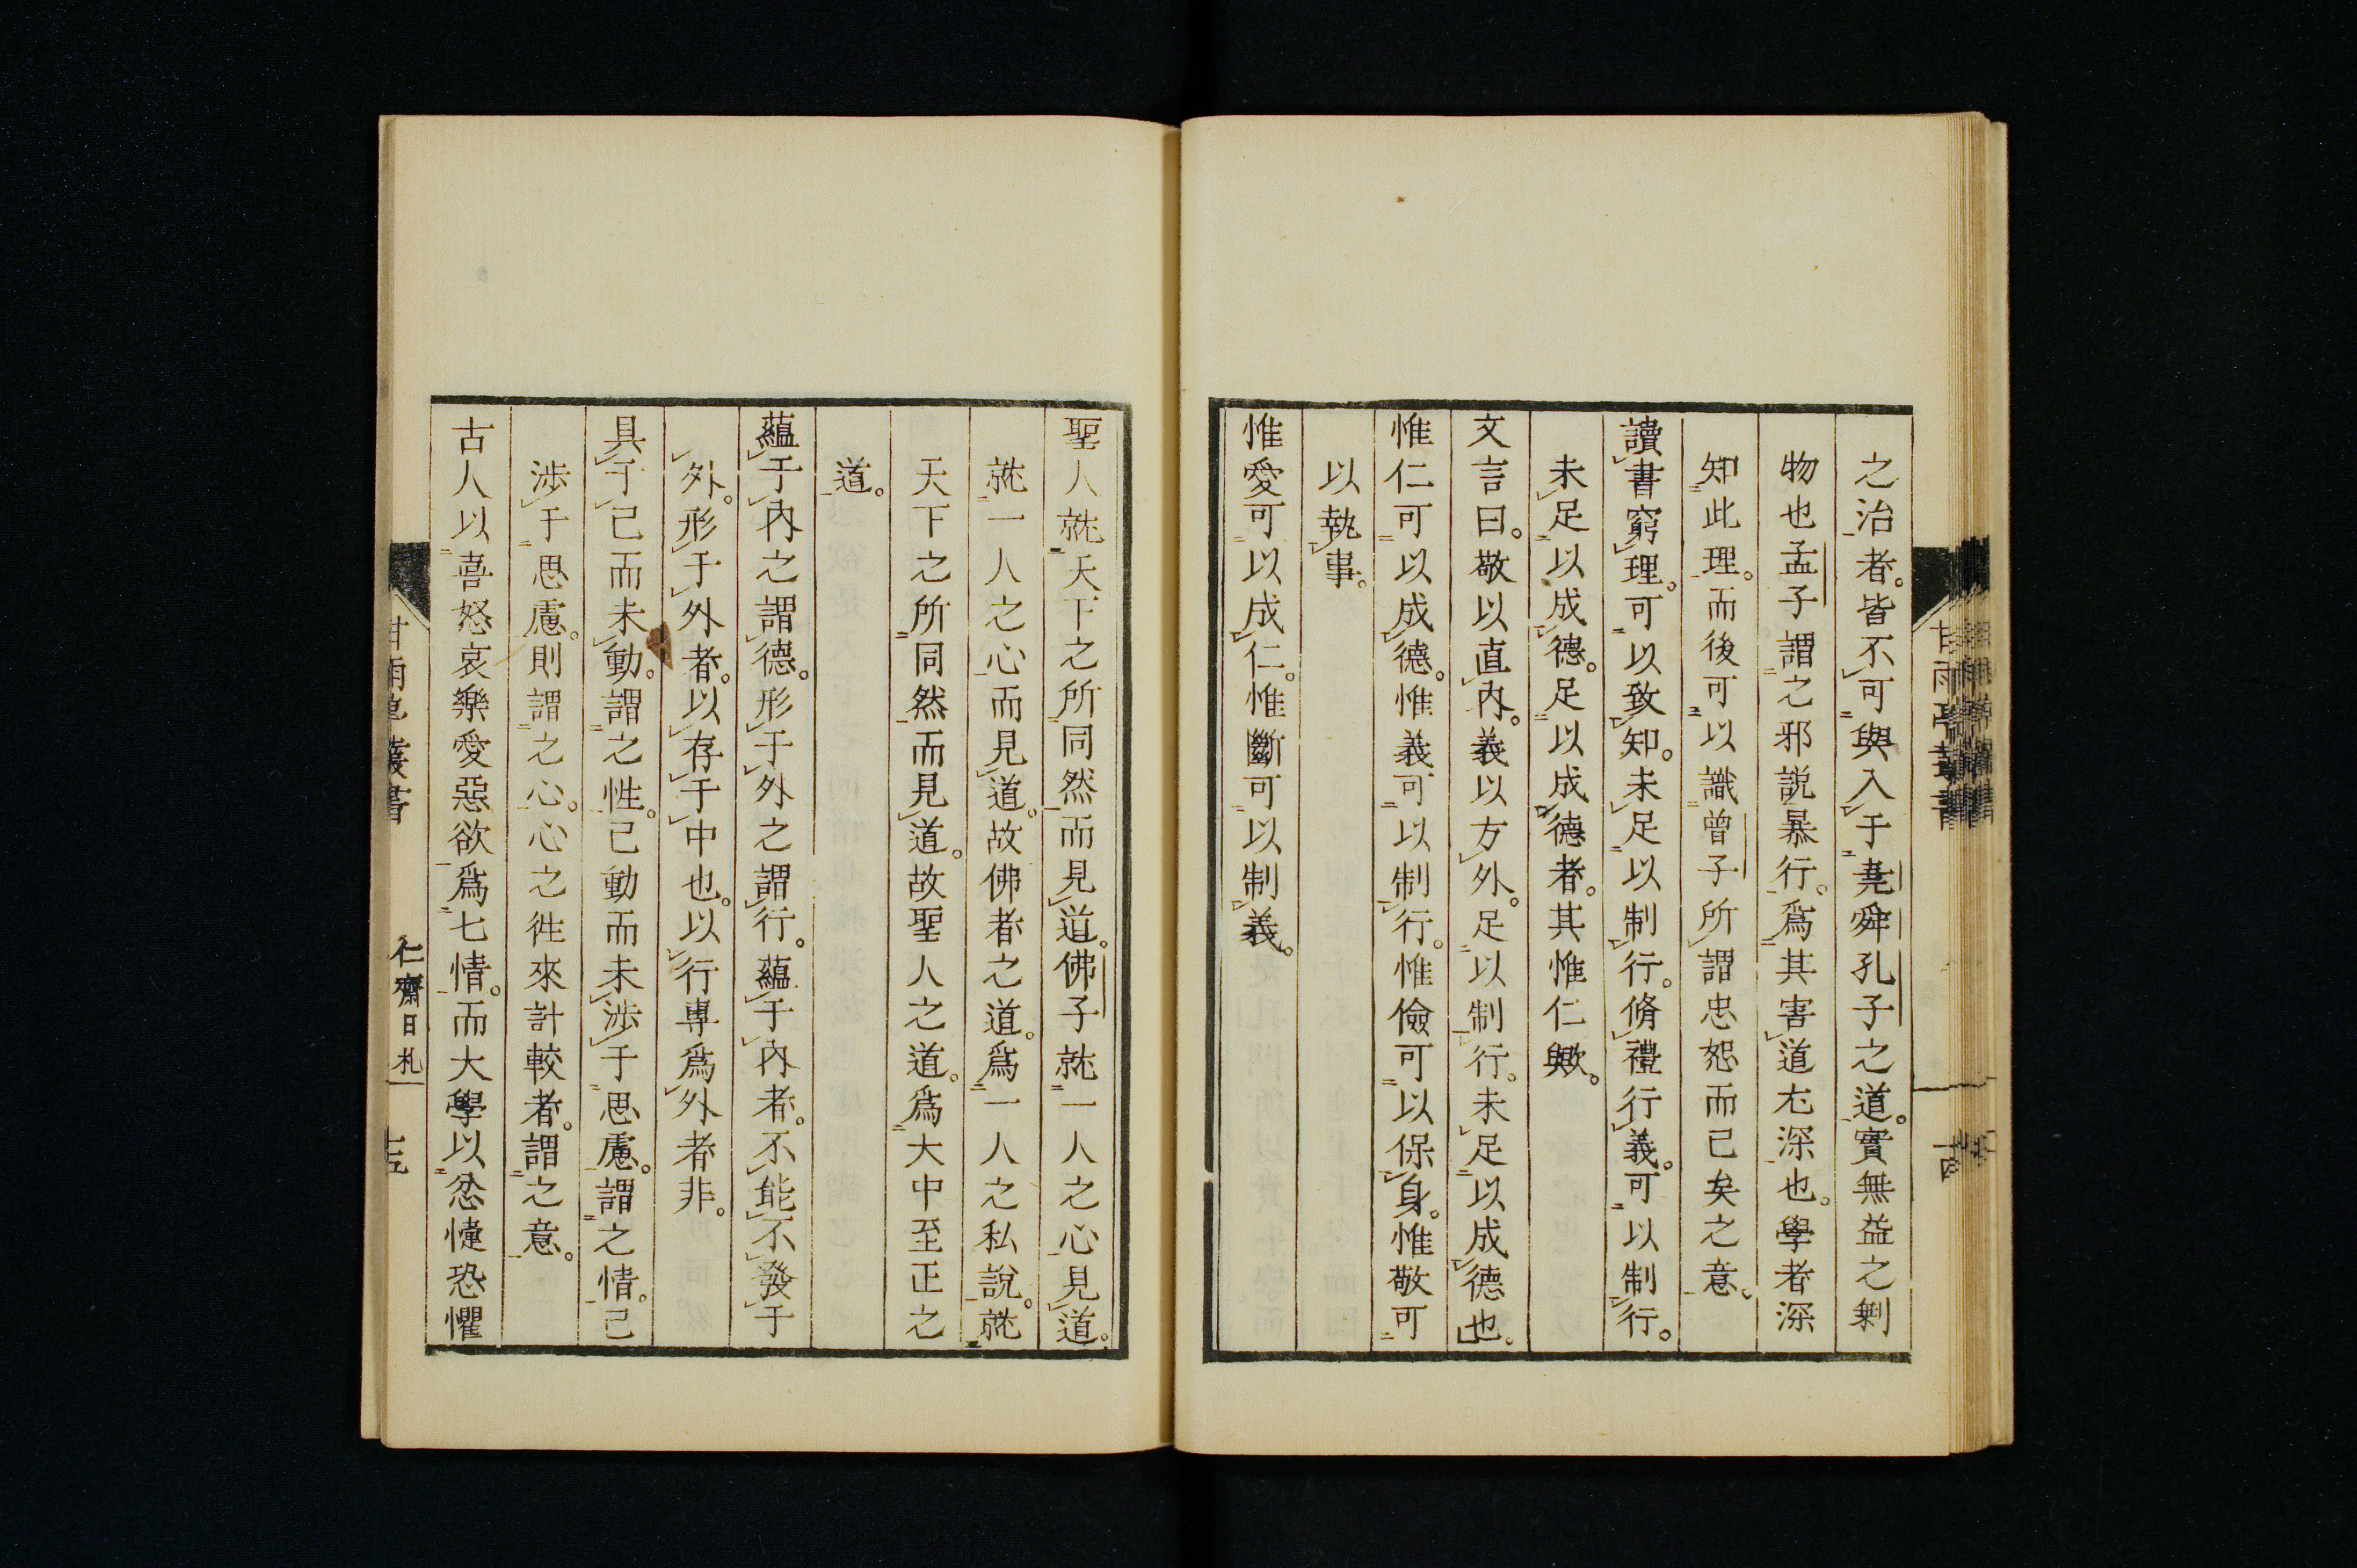 之治者。皆不可與入于堯舜孔子之道。實無益之剰
物也孟子謂之邪説暴行。爲其害道尤深也。學者深
知此理。而後可以識曽子所謂忠恕而已矣之意。
讀書窮理。可以致知。未足以制行。脩禮行義。可以制行。
未足以成德。足以成德者。其惟仁歟。
文言曰。敬以直內。義以方外。足以制行。未足以成德也。
惟仁可以成德。惟義可以制行。惟儉可以保身。惟敬可
以執事。
惟愛可以成仁。惟斷可以制義。
甘雨亭叢書
聖人就天下之所同然而見道。佛子就一人之心見道。
就一人之心而見道。故佛者之道。爲一人之私説。就
天下之所同然而見道。故聖人之道。爲大中至正之
道。
蘊于內之謂德。形于外之謂行。蘊于內者。不能不發于
外。形于外者。以存于中也。以行專爲外者非。
具于己而未動。謂之性。已動而未渉于思慮。謂之情。已
渉于思慮。則謂之心。心之徃來計較者。謂之意。
古人以喜怒哀樂愛惡欲爲七情。而大學以忿懥恐懼
甘雨亭叢書
仁齋日札